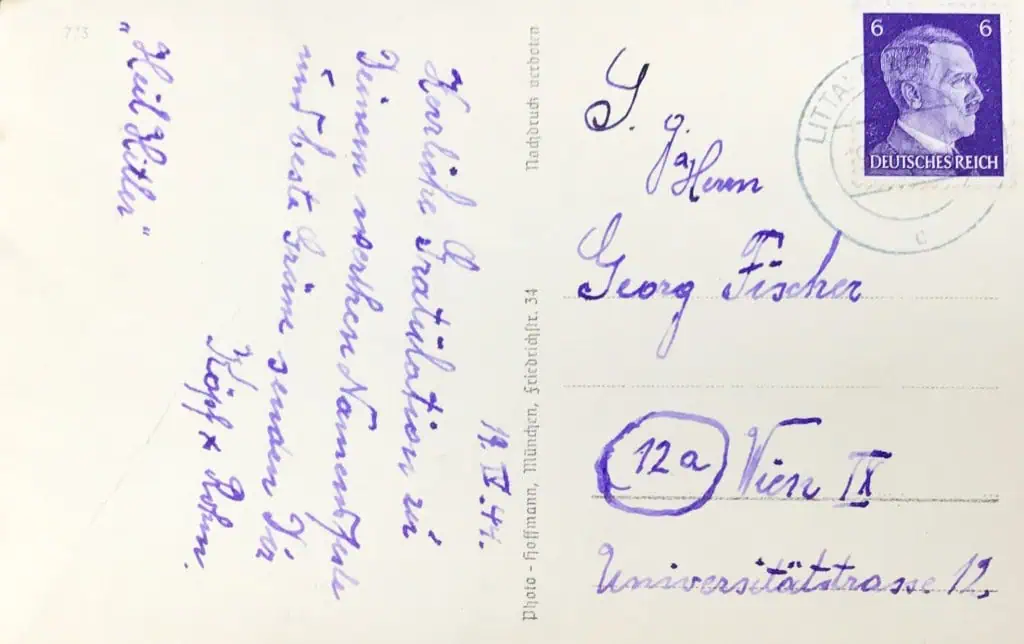 773
19. IV. 44.
Herzliche Gratulation zu
Deinem werthen Namensfeste
und beste Grüße senden Dir
Köpf
„Heil Hitler"
Photo-Hoffmann, München, Friedrichstr. 34
Nachdruck verboten
6 6
DEUTSCHES REICH
LITTA
c
S. g.
Herrn
Georg Fischer
12a Wien IX
Universitätstrasse 12,